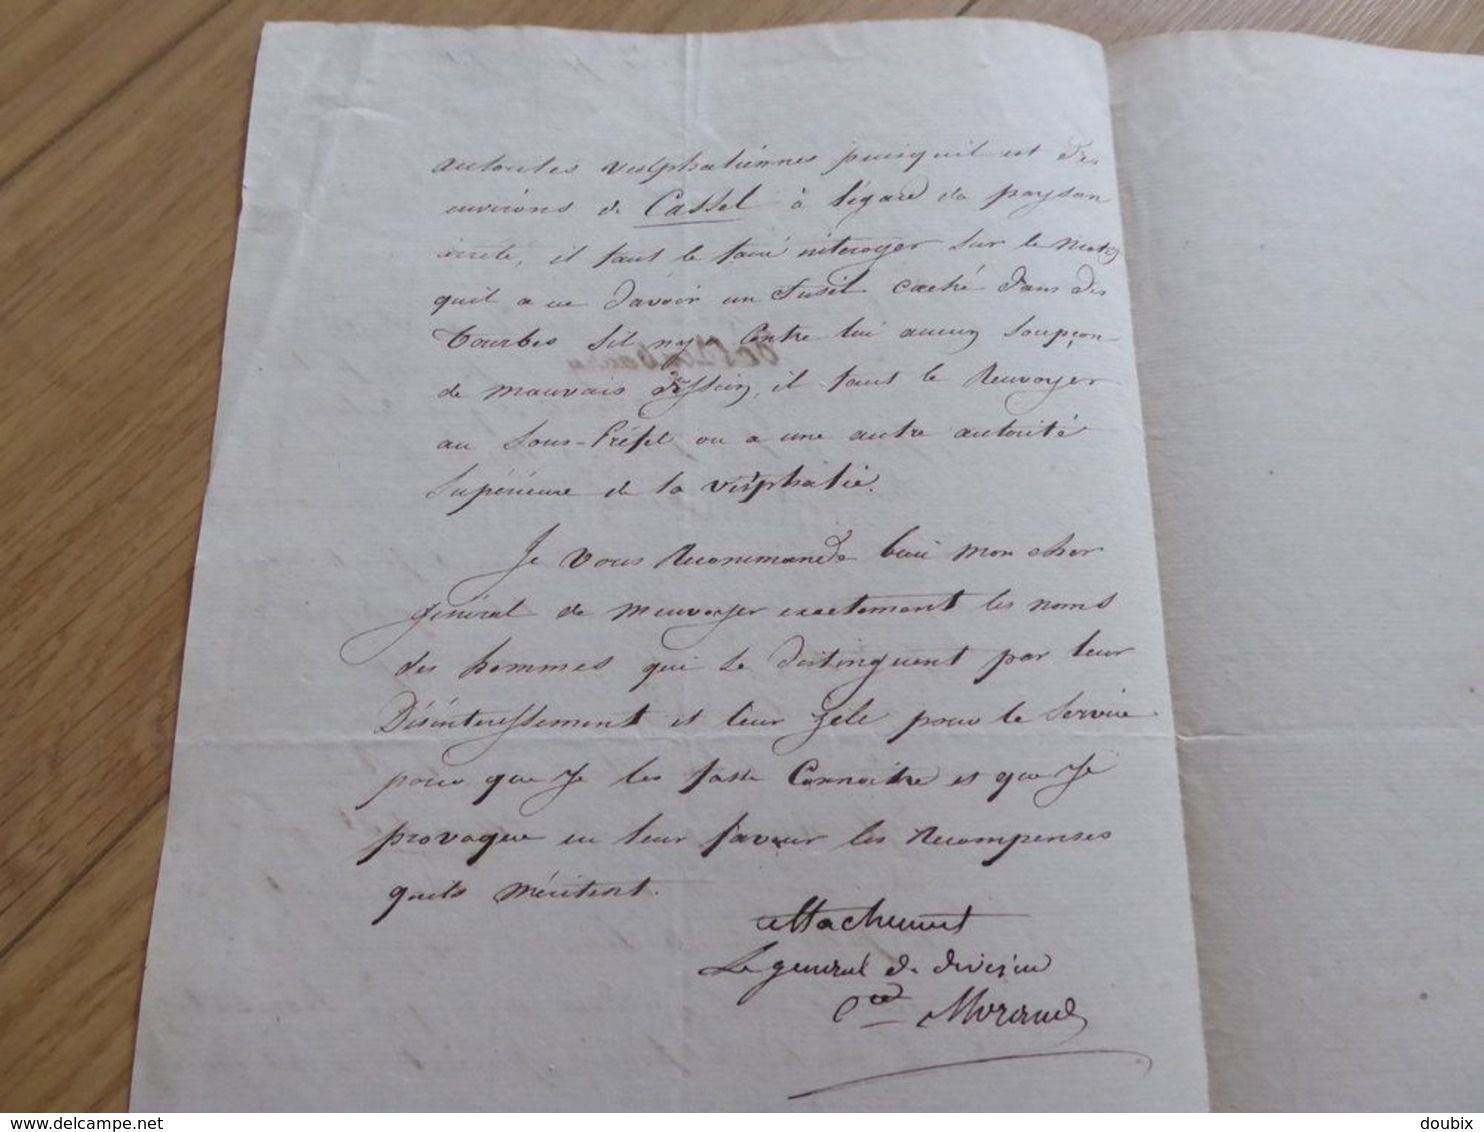 autorités vesphaliennes puisquil est des
environs de Cassel à légard du paysan
arrêté, il faut le faire interroger sur le motif
quil a eu d'avoir un fusil caché dans des
tourbes sil ny a contre lui aucun soupçon
de mauvais dessein, il faut le renvoyer
au sous-Préfet ou a une autre autorité
supérieure de la vesphalie.
Je vous recommande bien mon cher
général de m'envoyer exactement les noms
des hommes qui se distinguent par leur
Désintéressement et leur zele pour le service
pour que je les fasse connoitre et que je
provoque en leur faveur les recompenses
quils méritent.
attachement
Le général de division
Cte Morand
delcampe.net
doubix